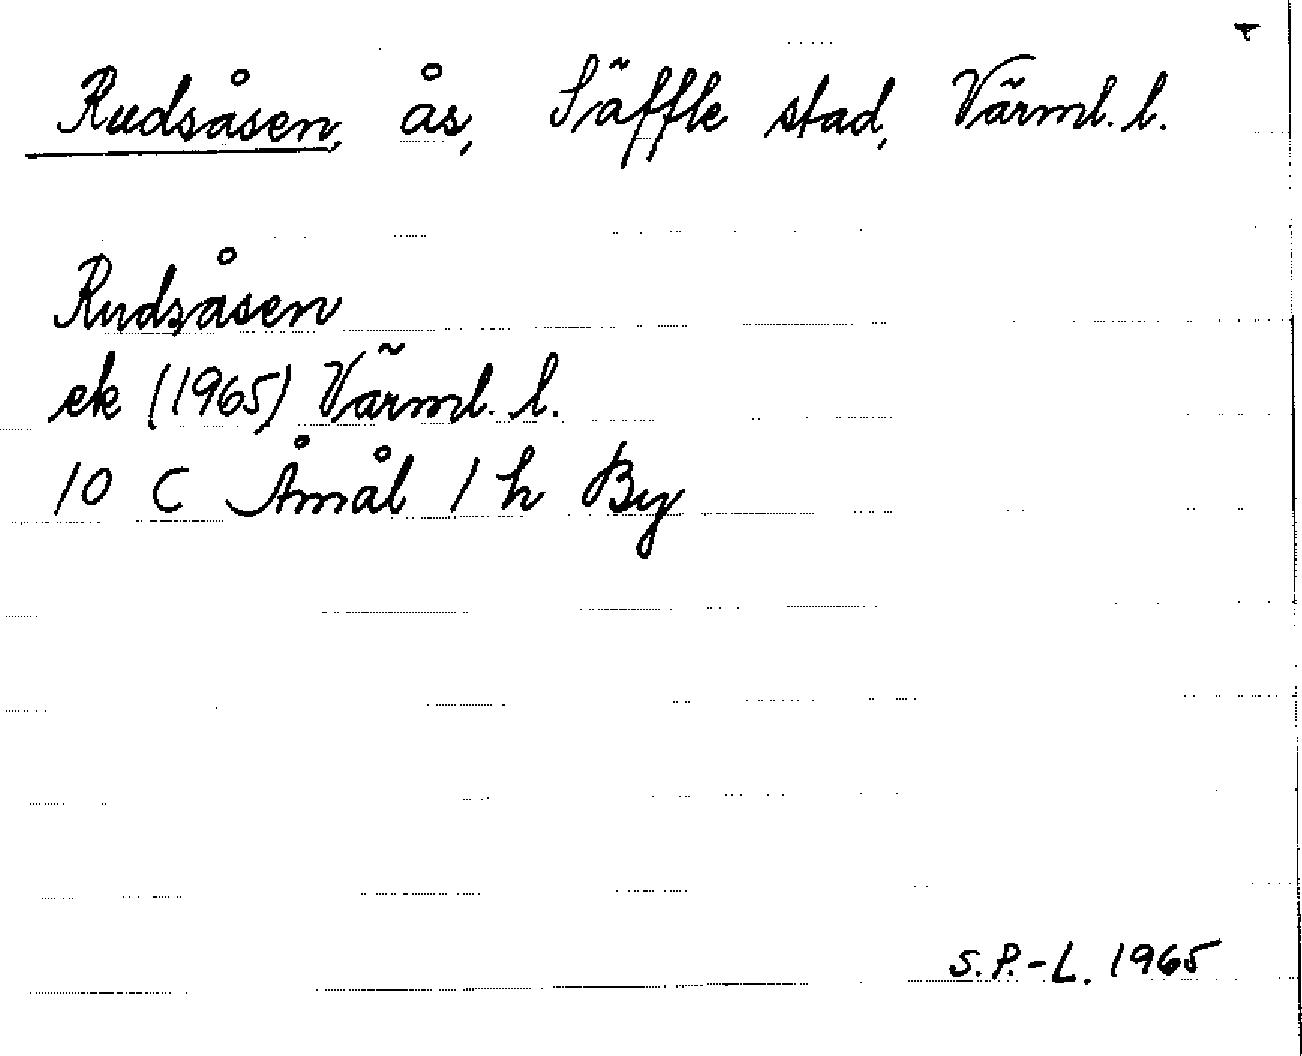 Rudsåsen, ås, Säffle stad, Värml. l.
Rudsåsen
ek (1965) Värml. l.
10 C Åmål 1 h By
S. P.-L. 1965